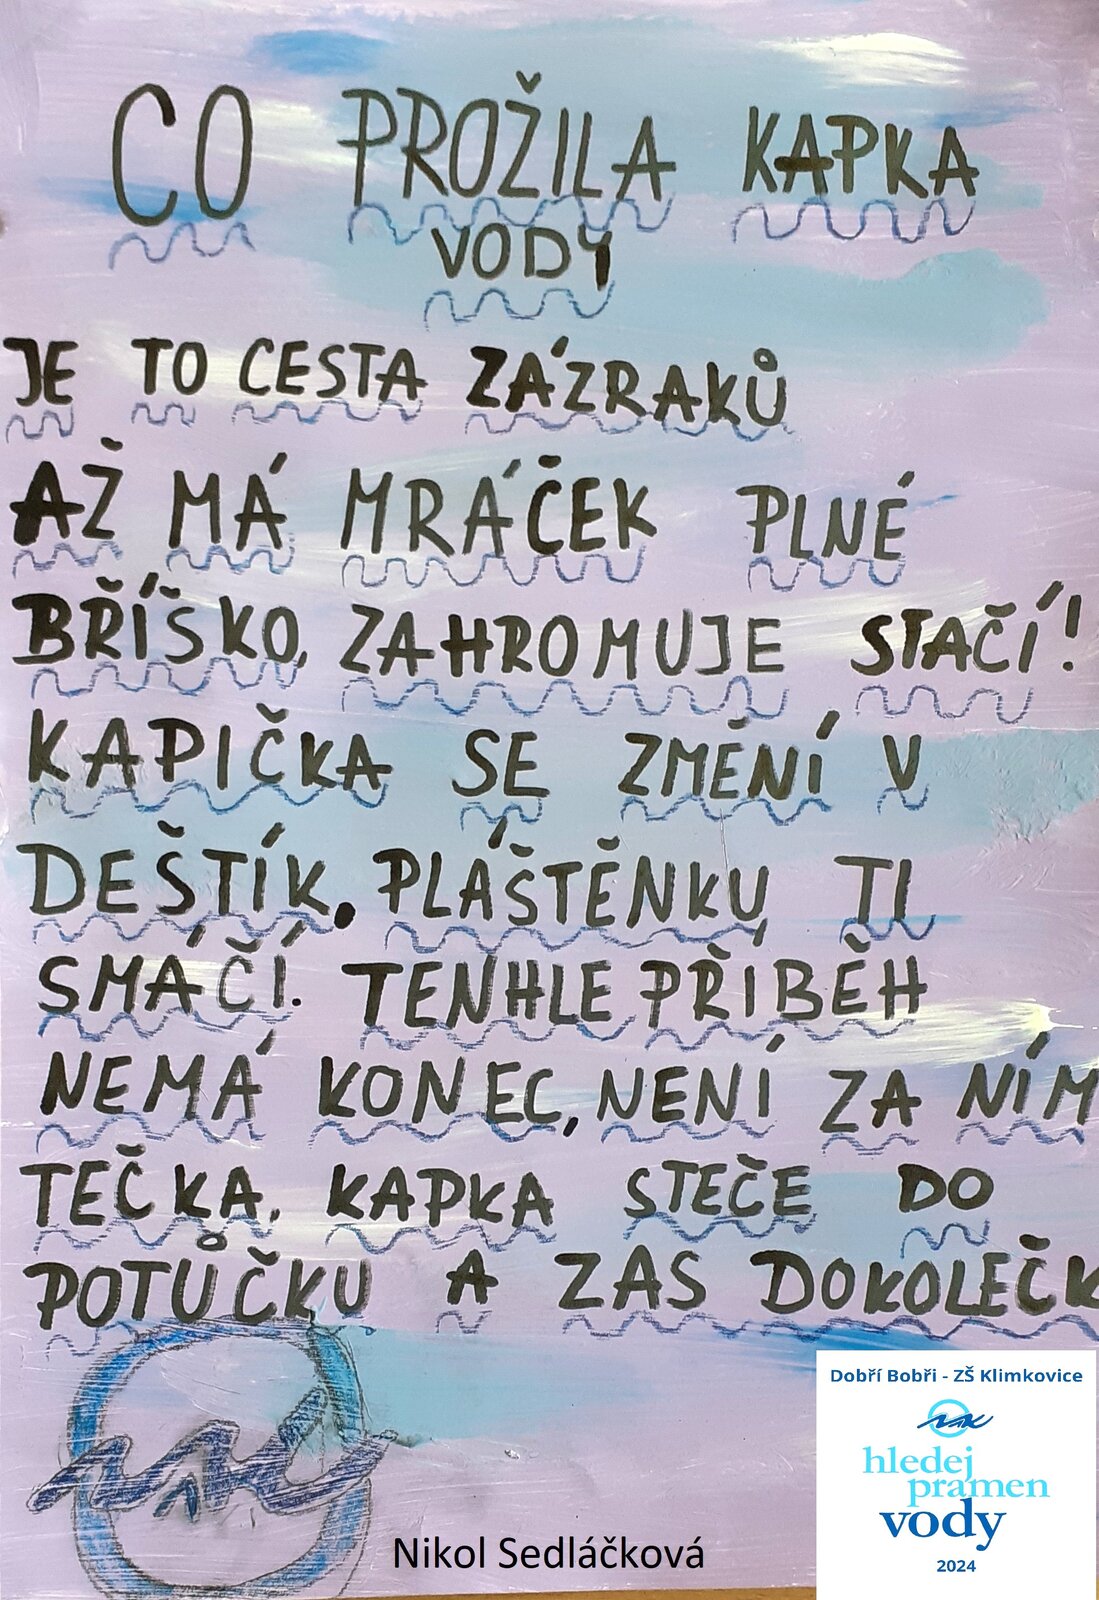 CO PROŽILA KAPKA
VODY
JE TO CESTA ZÁZRAKŮ
AŽ MÁ MRÁČEK PLNÉ
BŘÍŠKO, ZAHROMUJE STAČÍ!
KAPIČKA SE ZMĚNÍ V
DEŠTÍK. PLÁŠTĚNKU TI
SMÁČÍ. TENHLE PŘÍBĚH
NEMÁ KONEC, NENÍ ZA NÍM
TEČKA. KAPKA STEČE DO
POTŮČKU A ZAS DOKOLEČK
Nikol Sedláčková
Dobří Bobři - ZŠ Klimkovice
hledej
pramen
vody
2024